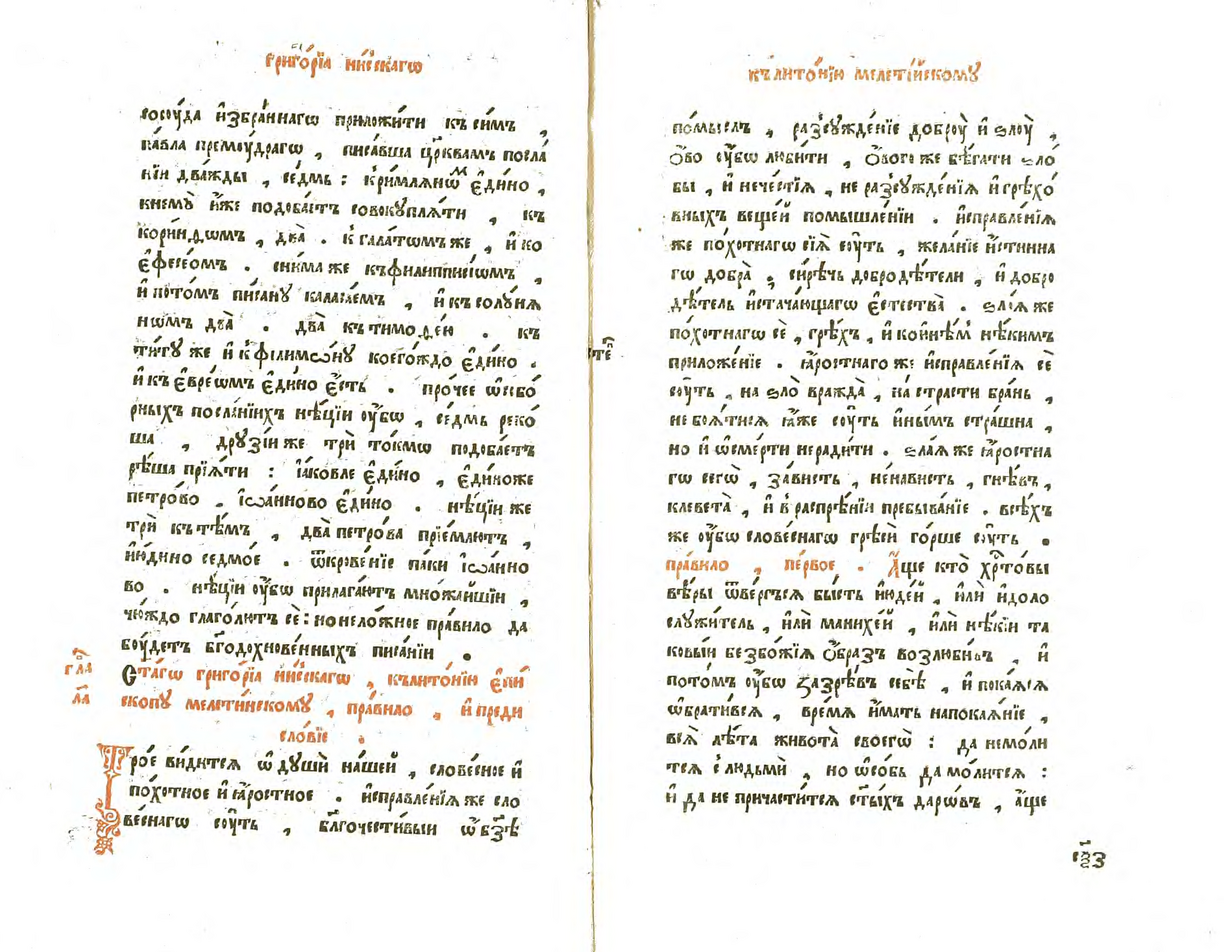 григо́рїа ни́сскагѡ
сосꙋ́да и҆збра́ннагѡ приложи́ти къ си́мъ ,
па́вла премꙋ́драгѡ , писа́вша цр҃квамъ посла́
нїи два́жды , се́дмь : к ри́млянѡⷨ є҆ди́но ,
кнемꙋ̀ и҆́же подоба́етъ совокꙋпля́ти , къ
кори́нѳѡмъ , два̀ . к гала́тѡмъ же , и҆ ко
є҆фесе́ѡм . сни́ма же къ филиппи́сїѡмъ ,
и҆ пото́мъ пи́санꙋ каласа́ем , и҆ къ солꙋ́ня
нѡмъ два̀ . два̀ къ тимоѳе́ю . къ
ти́тꙋ же и҆ к филимѡ́нꙋ коего́ждо є҆ди́но .
и҆ къ є҆вре́ѡмъ є҆ди́но є҆́сть . про́чее ѡ҆ собо́
рныхъ посла́нїихъ нѣ́цїи ᲂу҆́бѡ , се́дмь реко́
ша , дрꙋзі́и же трѝ то́кмѡ подоба́етъ
рѣ́ша прїѧ́ти : і҆а́ковле є҆ди́но , є҆ди́ноже
петро́во . і҆ѡа́нново є҆ди́но . нѣ́цїи же
трѝ къ тѣ́мъ , два̀ петро́ва прїе́млютъ ,
и҆ю́дино седмо́е . ѿкрове́нїе па́ки і҆ѡа́нно
во . нѣ́цїи ᲂу҆́бѡ прилага́ютъ мно́жайшїи ,
чю́ждо глаго́лютъ сѐ : но нело́жное пра́вило да
бꙋ́детъ бг҃одохнове́нныхъ писа́нїи .
гла̑
л҃а
Ст҃а́гѡ григо́рїа ни́сскагѡ , къ литоі́ю є҆пи́
скопꙋ мелети́нскомꙋ , пра́вило , и҆ преди
сло́вїе .
Трое́ ви́дится ѡ҆ дꙋшѝ на́шей , слове́сное и҆
по́хотное и҆ ꙗ҆́ростное . и҆справле́нїѧ же сло
ве́снагѡ сꙋ́ть , бл҃гочести́выи ѡ҆ бз҃ѣ
къ литоі́ю мелеті́йскомꙋ
по́мыслъ , разсꙋжде́нїе доброꙋ̀ и҆ ѕлоꙋ̀ ,
ѻ҆́во ᲂу҆́бѡ люби́ти , ѻ҆́вого же бѣ́гати ѕло́
бы , и҆ нече́стїѧ , не разсꙋжде́нїѧ и҆ грѣхо́
вныхъ веще́й помышле́нїи . и҆справле́нїѧ
же по́хотнагѡ сїѧ̀ сꙋ́ть , жела́нїе и҆́стинна
гѡ добра̀ , си́рѣчь добродѣ́тели , и҆ добро
дѣ́тель и҆стача́ющагѡ є҆стества̀ . ѕла́ѧ же
по́хотнагѡ сѐ , грѣ́хъ , и҆ ко и҆нѣ́м нѣ́кимъ
приложе́нїе . ꙗ҆́ростнаго же и҆справле́нїѧ сѐ
сꙋ́ть , на ѕло̀ вражда̀ , на́ страсти бра́нь ,
не боѧ́тисѧ ꙗ҆́же сꙋ́ть и҆ны́мъ стра́шна ,
но и҆ ѡ҆ сме́рти неради́ти . ѕла́ѧ же ꙗ҆́ростна
гѡ сегѡ̀ , за́висть , не́нависть , гнѣ́въ ,
клевета̀ , и҆ в распрѣ́нїи пребыва́нїе . всѣ́хъ
же ᲂу҆́бѡ слове́снагѡ грѣсѝ го́рше сꙋ́ть .
пра́вило , пе́рвое . А҆́ще кто̀ хрⷭ҇то́вы
вѣ́ры ѿве́ргъся бы́сть и҆юде́й , и҆лѝ и҆доло
слꙋжи́тель , и҆лѝ манихе́й , и҆лѝ нѣ́кїи та
ковы́и безбо́жїѧ ѻ҆́бразъ возлюби́въ , и҆
пото́мъ ᲂу҆́бѡ зазрѣ́въ себѣ̀ , и҆ пока́ѧся
ѡ҆брати́вся , вре́мѧ и҆́мать на покаѧ́нїе ,
всѧ̀ лѣ́та живота̀ своегѡ̀ : да не мо́ли
тся с людьмѝ , но ѡ҆со́бь да мо́лится :
и҆ да не причасти́тся ст҃ы́хъ дарѡ́въ , а҆́ще